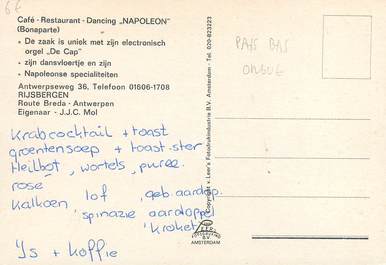 Café - Restaurant - Dancing „NAPOLEON"
(Bonaparte)
• De zaak is uniek met zijn electronisch
orgel „De Cap"
• zijn dansvloertje en zijn
• Napoleonse specialiteiten
Antwerpseweg 36, Telefoon 01606-1708
RIJSBERGEN
Route Breda - Antwerpen
Eigenaar - J.J.C. Mol
Krabcocktail + toast
groentensoep + toast-ster
Heilbot, wortels, puree.
rosé
Kalkoen lof, geb. aardap.
spinazie aardappel
kroket
IJs + koffie
Copyright v. Leer's Fotodrukindustrie B.V. Amsterdam - Tel. 020-823223
PAYS BAS
ORGUE
B.V.
AMSTERDAM